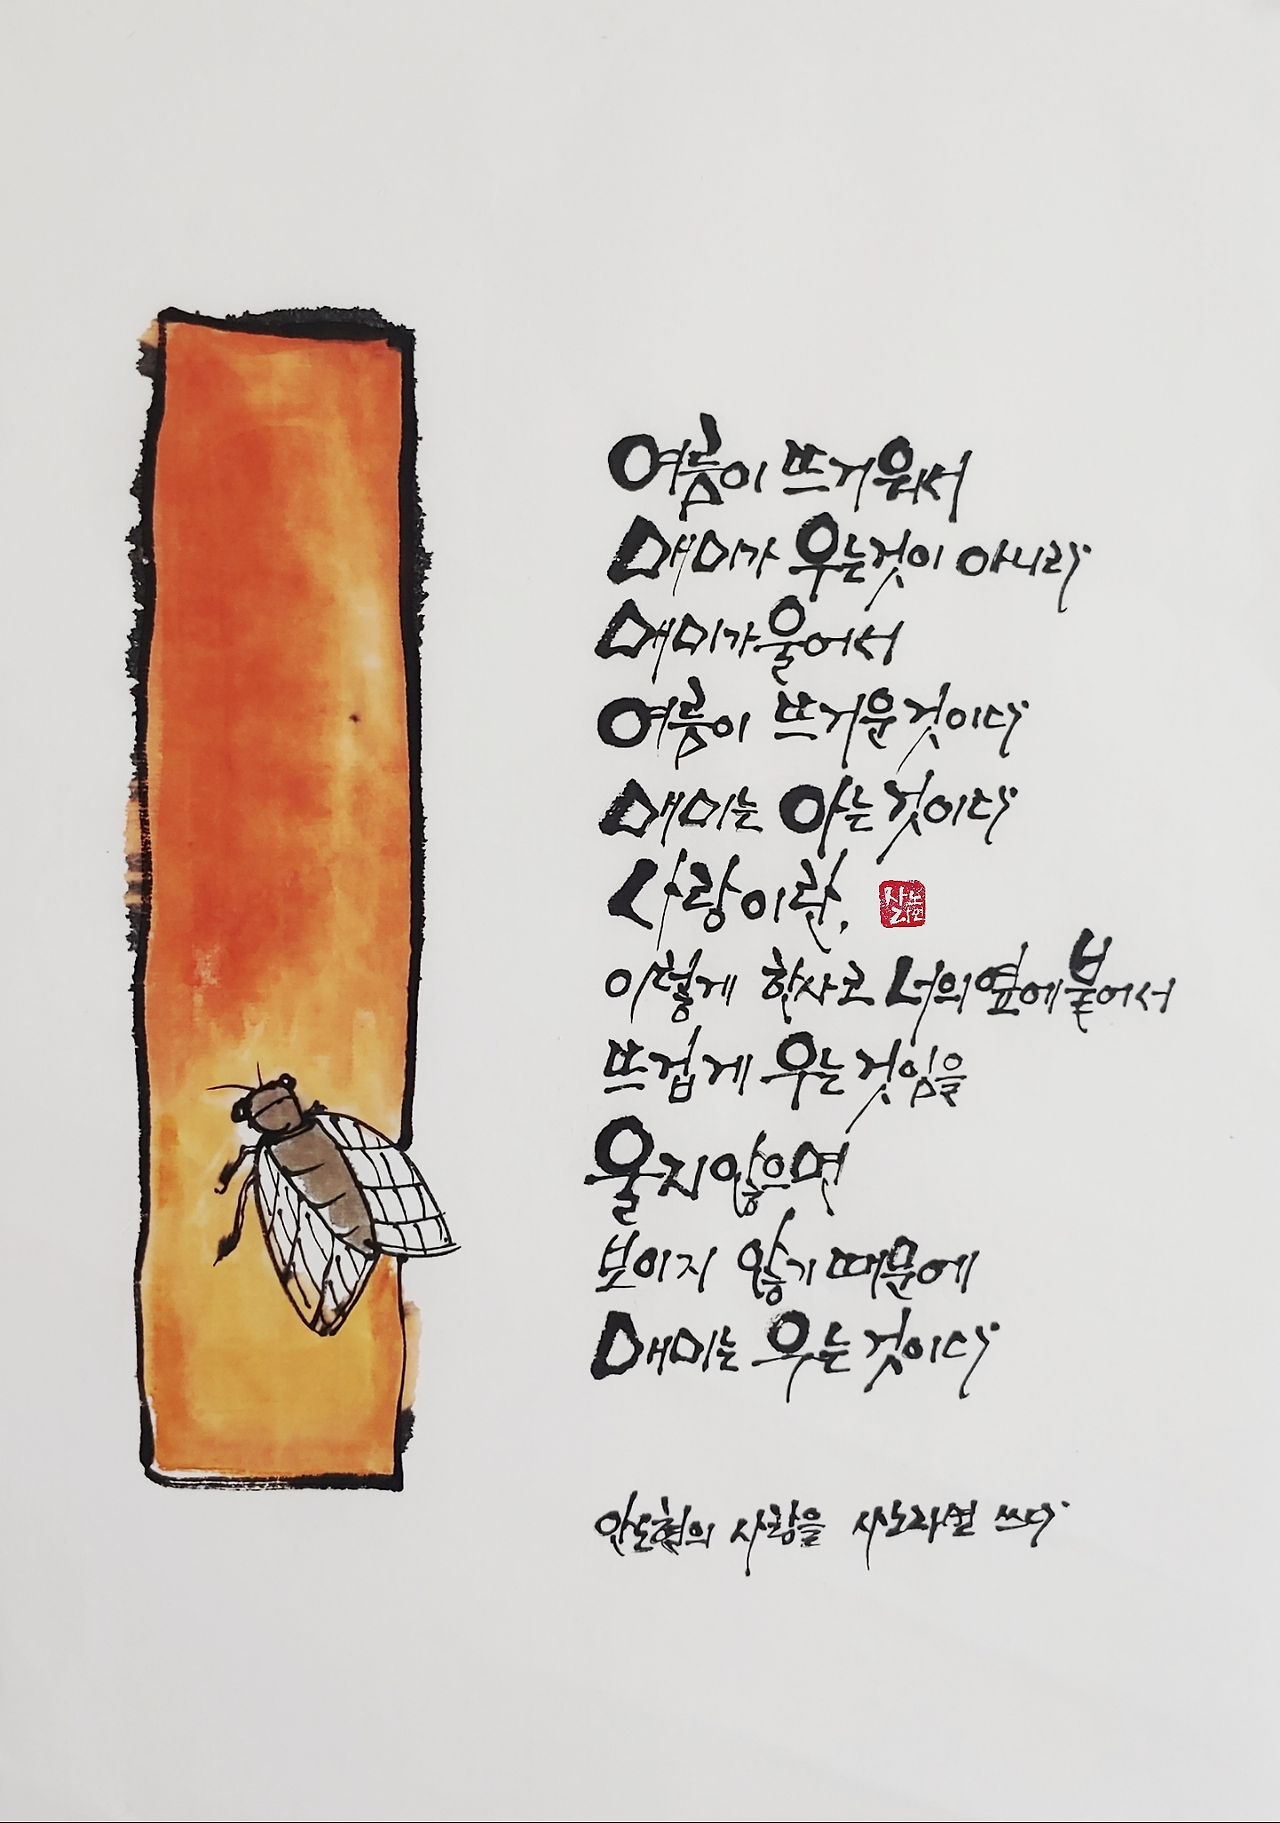 여름이 뜨거워서
매미가 우는것이 아니라
매미가울어서
여름이 뜨거운것이다
매미는 아는것이다
사랑이란,
이렇게 한사코 너의옆에붙어서
뜨겁게 우는것임을
울지않으면
보이지 않기때문에
매미는 우는것이다
안도현의 사랑을 사노라면 쓰다
사노라면